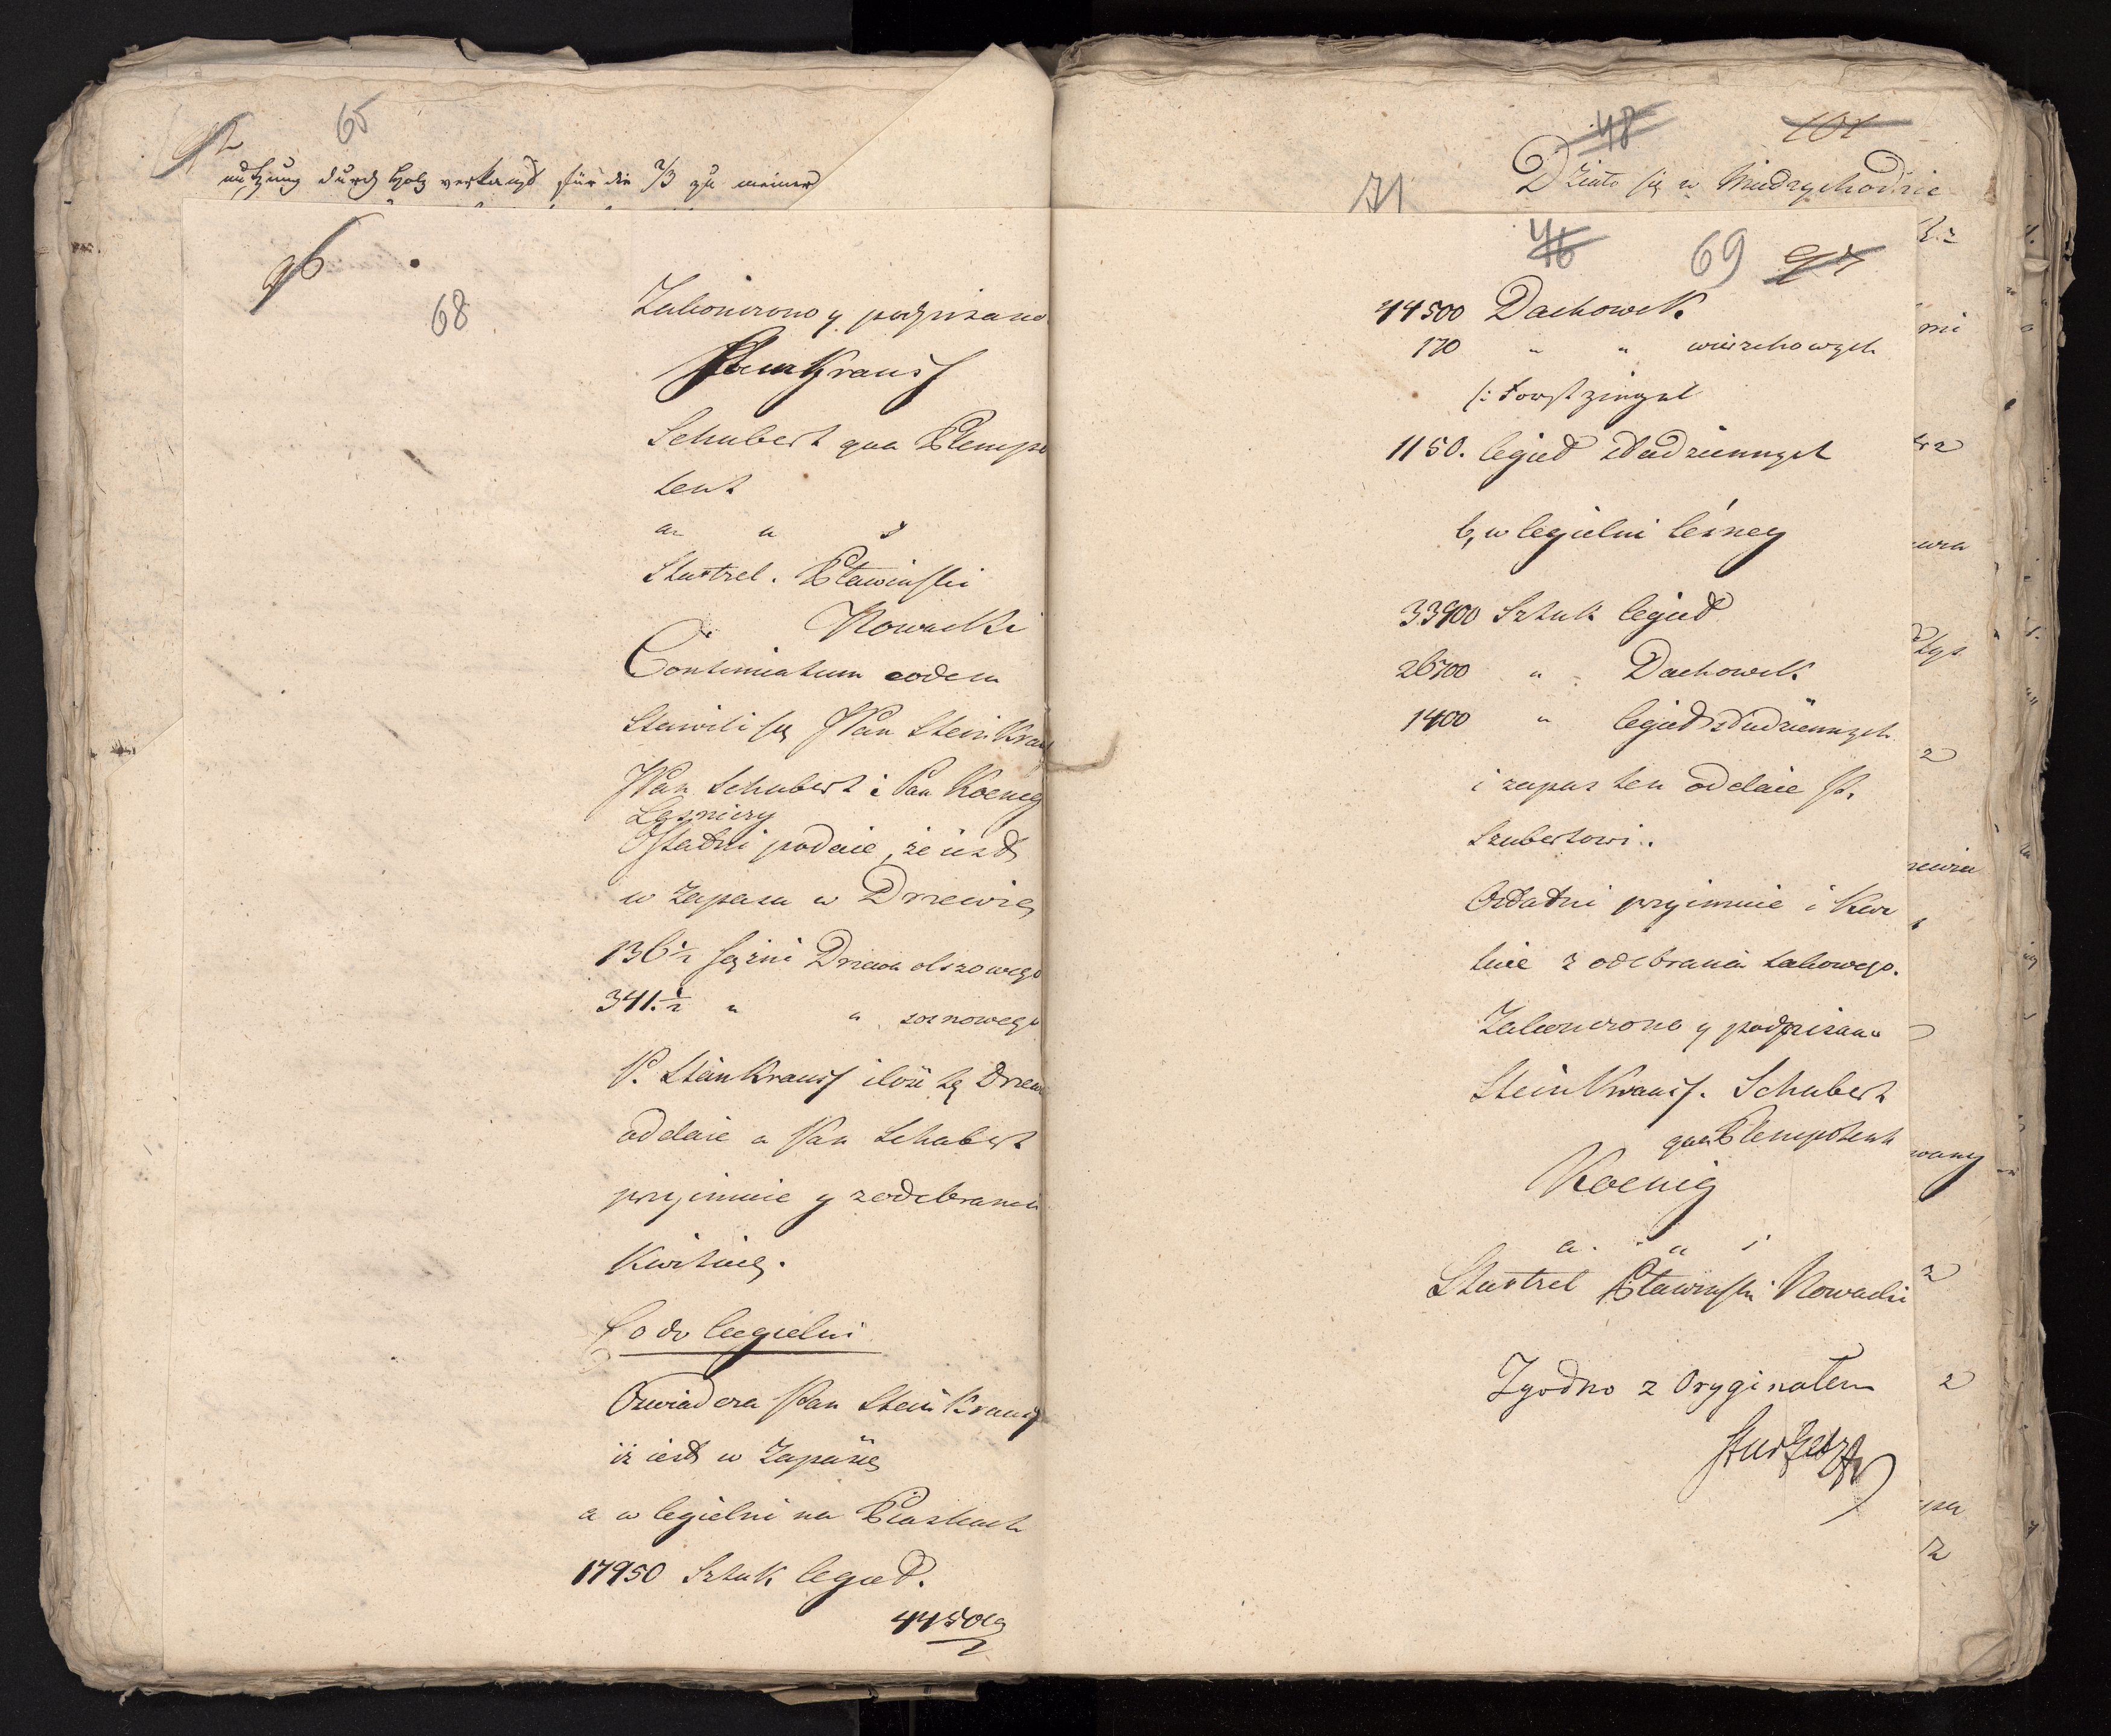 65
nutzung durch Holz verkauf für die 2/3 zu meiner
96
68
Zakonczono y podpisano
SteinKrauss
Schubert qua Plenipo
tent
a u s
Stortzel. Pławinski
Nowacki
Continuatum eodem
Stawili się JPan SteinKraus
JPan Schubert i Pan Koenig
Leśniczy
Ostatni podaie, że iest
w Zapasu w Drzewie
136½ sążni Drzewa olszowego
341.½ " " sosnowego
P. SteinKrauss ilość tę Drzewa
oddaie a Pan Schubert
przyimuie y z odebrania
Kwituie.
Co do Cegielni
Oswiadcza Pan SteinKrauss
iż iest w Zapasie
a w Cegielni na Piaskach
17950 Sztuk Cegieł.
44500
48
101
71
Działo się w Miedzychodzie
46
69
97
44500 Dachowek
170 " " wierzchowych
/: Forstziegel
1150. Cegieł studziennych
b, w Cegielni leśney
33900 Sztuk Cegieł
26700 " Dachowek
1400 " Cegieł studziennych
i zapas ten oddaie P.
Szubertowi.
Ostatni przyimuie i Kwi
tuie z odebrania takowego.
Zakonczono y podpisano
SteinKrauss. Schubert
qua Plenipotent
Koenig
a. u s
Stortzel Pławinski Nowacki
Zgodno z Oryginałem